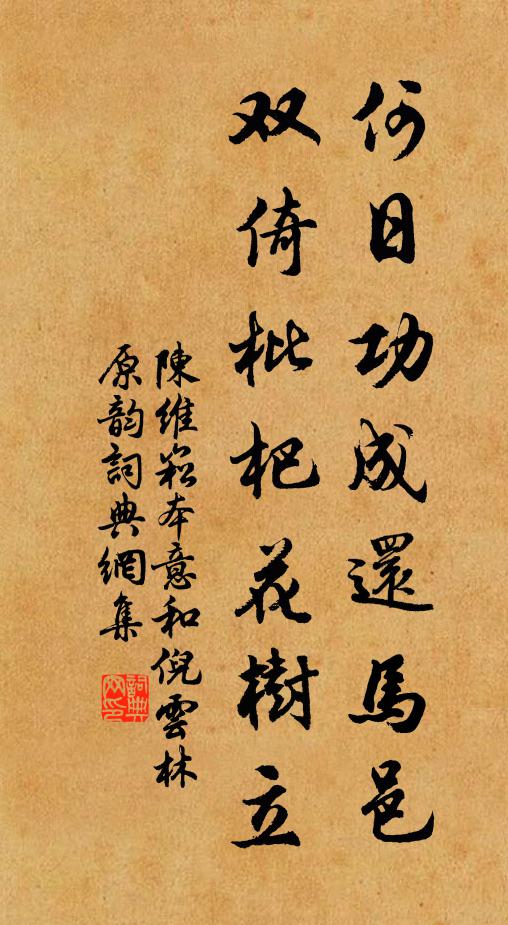 何日功成還馬邑
双倚枇杷花樹立
陳維崧本意和倪雲林
原韵詞典網集
詞典網印